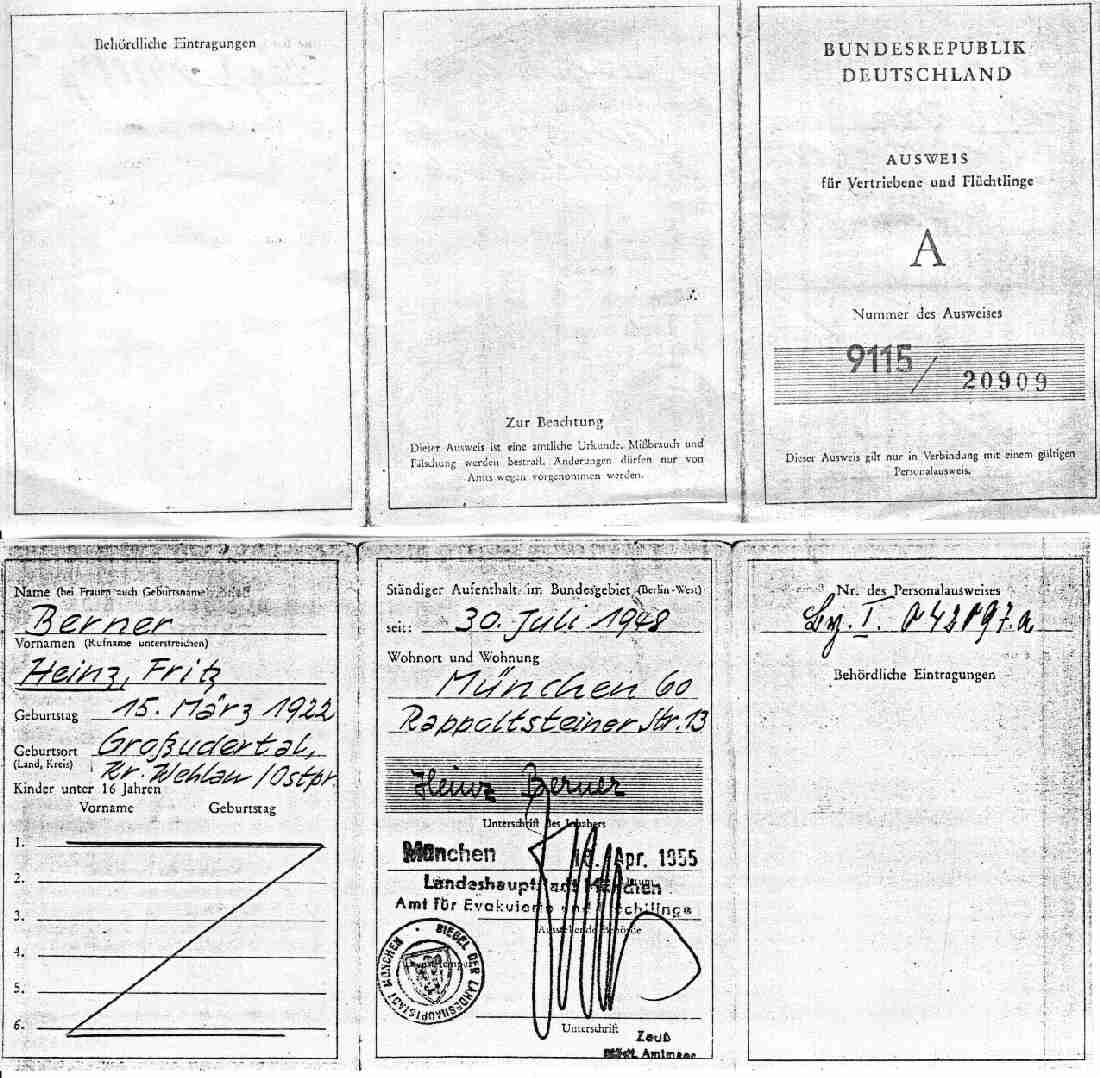 Behördliche Eintragungen
Zur Beachtung
Dieser Ausweis ist eine amtliche Urkunde. Mißbrauch und
Fälschung werden bestraft. Änderungen dürfen nur von
Amts wegen vorgenommen werden.
BUNDESREPUBLIK
DEUTSCHLAND
AUSWEIS
für Vertriebene und Flüchtlinge
A
Nummer des Ausweises
9115/20909
Dieser Ausweis gilt nur in Verbindung mit einem gültigen
Personalausweis.
Name (bei Frauen auch Geburtsname)
Berner
Vornamen (Rufname unterstreichen)
Heinz, Fritz
Geburtstag 15. März 1922
Geburtsort Großudertal,
(Land, Kreis) Kr. Wehlau/Ostpr.
Kinder unter 16 Jahren
Vorname Geburtstag
1.
2.
3.
4.
5.
6.
Ständiger Aufenthalt im Bundesgebiet (Berlin-West)
seit: 30. Juli 1948
Wohnort und Wohnung
München 60
Rappoltsteiner Str. 13
Heinz Berner
Unterschrift des Inhabers
München Apr. 1955
Landeshauptstadt München
Amt für Evakuierte und Flüchtlinge
Ausstellende Behörde
SIEGEL DER LANDESHAUPTSTADT MÜNCHEN
Unterschrift
Zauß
Nr. des Personalausweises
Behördliche Eintragungen